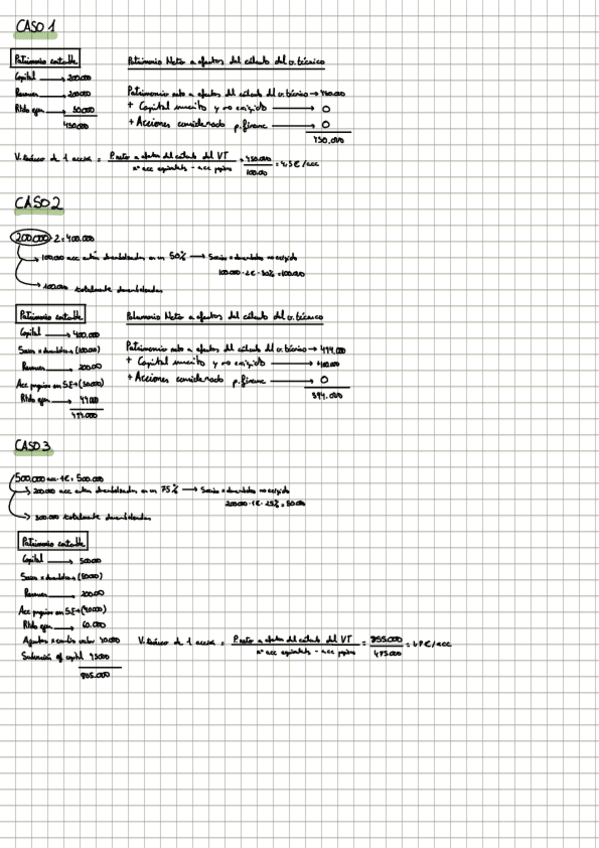 CASO 1
Patrimonio contable
Patrimonio Neto a efectos del cálculo del v. técnico
Capital → 200.000
Reservas → 200.000
Patrimonio neto a efectos del cálculo del v. técnico → 450.000
Rtdo ejer → 50.000
+ Capital suscrito y no exigido → 0
450.000
+ Acciones considerado p. financ → 0
450.000
V. teórico de 1 acción = P. neto a efectos del cálculo del VT / nº acc equivalente - acc propias = 450.000 / 100.00 = 4,5 € / acc
CASO 2
200.000 · 2 = 400.000
→ 100.000 acc están desembolsadas en un 50% → Socios x desembolsos no exigido
100.000 · 2€ · 50% = 100.000
→ 100.000 totalmente desembolsadas
Patrimonio contable
Patrimonio Neto a efectos del cálculo del v. técnico
Capital → 400.000
Socios x desembolsos (100.000)
Patrimonio neto a efectos del cálculo del v. técnico → 494.000
Reservas → 200.00
+ Capital suscrito y no exigido → +100.000
Acc propias en S.E → (50.000)
+ Acciones considerado p. financ → 0
Rtdo ejer →
594.000
CASO 3
500.000 acc · 1€ = 500.000
→ 200.000 acc están desembolsadas en un 75% → Socios x desembolsos no exigido
200.000 · 1€ · 25% = 50.000
→ 300.000 totalmente desembolsadas
Patrimonio contable
Capital → 500.00
Socios x desembolsos (50.000)
Reservas → 200.00
Acc propias en S.E →
Rtdo ejer → 60.000
Ajustes x cambio valor
V. teórico de 1 acción = P. neto a efectos del cálculo del VT / nº acc equivalente - acc propias = 855.000 / 475.000 =
Subvención of capital
805.000